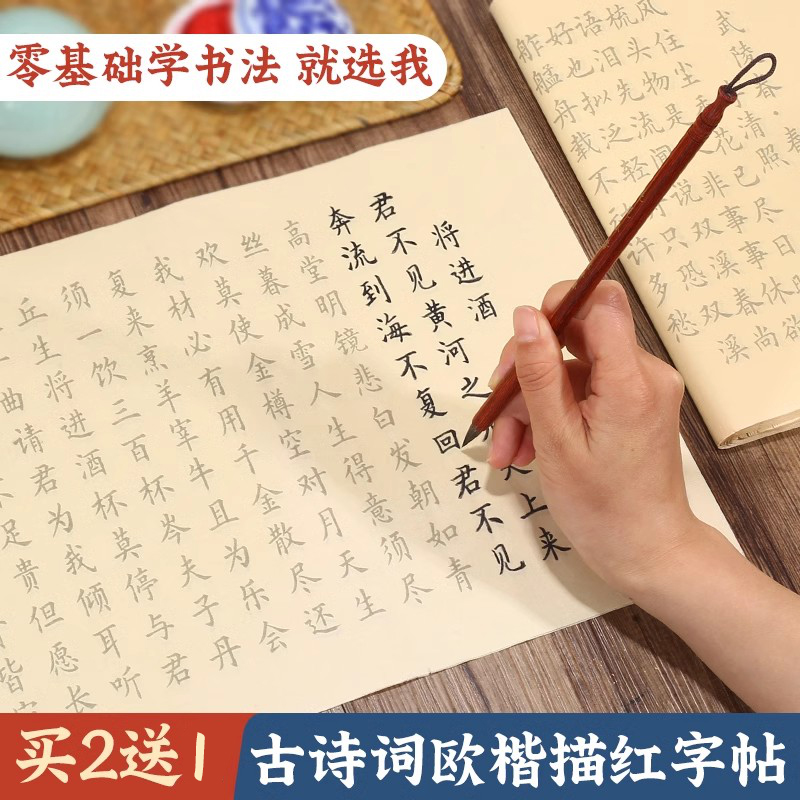 零基础学书法 就选我
将进酒
君不见黄河之天上来
奔流到海不复回君不见
高堂明镜悲白发朝如青
丝暮成雪人生得意须尽
欢莫使金樽空对月天生
我材必有用千金散尽还
复来烹羊宰牛且为乐会
须一饮三百杯岑夫子丹
丘生将进酒杯莫停与君
一曲请君为我倾耳听
足贵但愿长
皆
武陵春
清·照
风住尘花已尽日
梳头物是非事事休欲
语泪先流闻说双溪春尚
好也拟泛轻只恐双溪
舴艋舟载不许多愁
买2送1
古诗词欧楷描红字帖